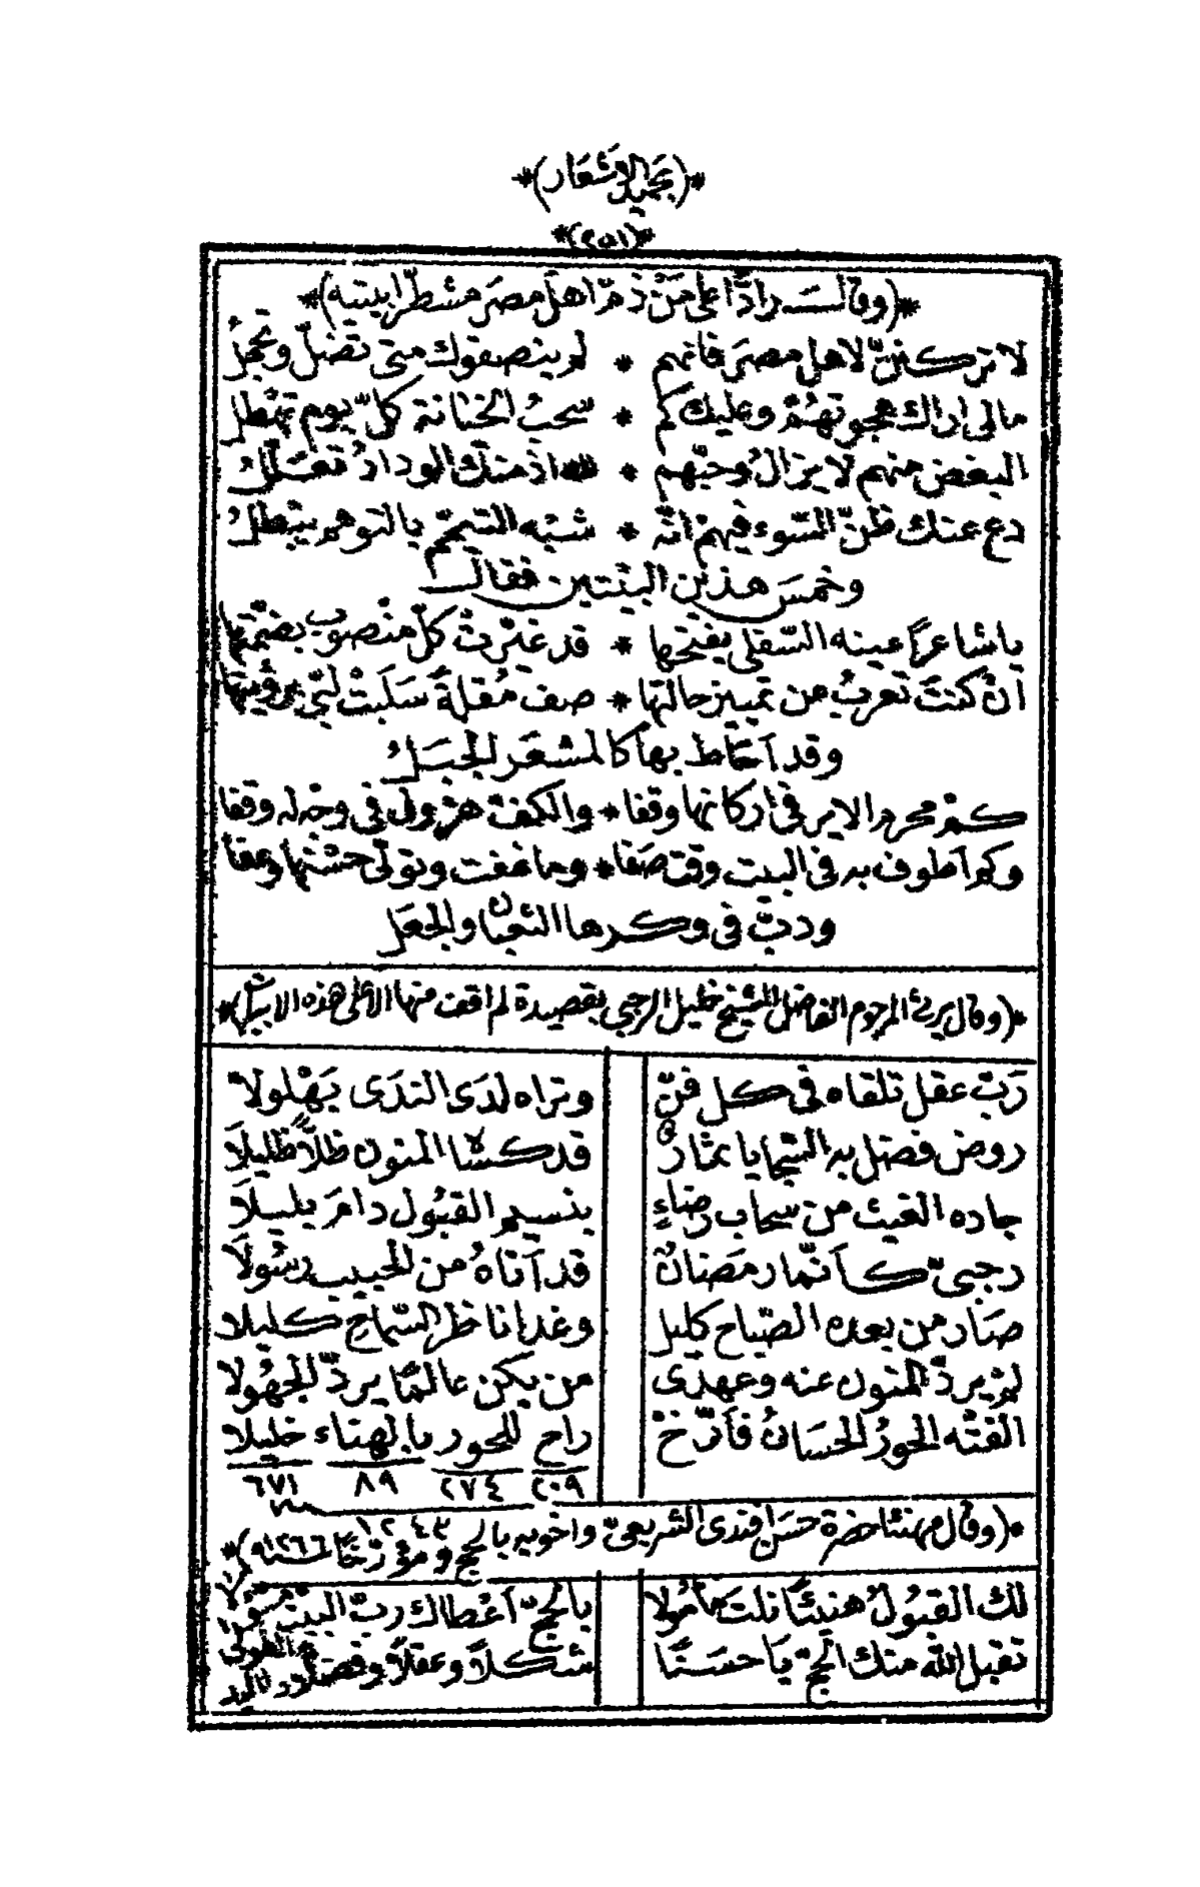 *(بجميل الاشعار)*
*(٢٥١)*
*(وقالــــ رادّا على من ذمّ اهل مصر مشطرا بيته)*
لا تركننّ لاهل مصر فانهم * لم ينصفوك متى تضلّ وتجهلُ
مالى اراك هجوتهمْ وعليك كم * سحبُ الخنانة كلّ يوم تهطل
البغض منهم لا يزالُ وحبّهم * اذ منك الودادُ
دع عنك ظنّ السّوء فيهمْ انّه * شبْه التيمّم بالتوهم يبطلُ
وخمسَ هذين البيْتين فقالـــ
يا شاعرًا عينه السّفلى يفتحها * قد غيّرتْ كلّ منْصوب بضمّتها
انْ كنتَ تعربُ من تمييز حالتها * صف مُقلةً سَلَبتْ لبّي برؤيتها
وقد احاط بها كالمشعَر الجبَلُ
كمْ محرم الاير فى اركانها وقفا * والكفتْ هرْولى فى وجْه له وقفا
وكم اطوف به فى البيت وقت صَفا * وما عفت وتولّى حسْنها وعفا
ودبّ فى وكرها الثعبان والجعَل
*(وقال يرثى المرحوم الفاضل الشيخ خليل الرجبى بقصيدة لم اقف منها الا على هذه الابيات)*
رَبّ عقل تلقاه فى كل فنّ وتراه لدَى الندَى بَهْلولا
روض فضل به السّجايا ثمارٌ قد كساه المنون ظلاًّ ظليلاَ
جاده الغيث من سحاب رضاءٍ بنسيم القبُول دامَ بليلاَ
رجبىّ كأنّما رمَضانٌ قد أتاهُ من الحبيب رسُولاَ
صَار من بعده الصّباح كليل وغدا ناظر السّماحِ كليلا
لمْ يردّ المنون عنه وعهدى من يكن عالمًا يردّ الجهُولا
الفتْه الحورُ الحسَانُ فأرّخْ راح للحور بالهناء خليلا
٢٠٩ ٢٧٤ ٨٩ ٦٧١
١٢٤٣
*(وقال مهنئا حضرة حسَن افندى الشريعىّ واخويه بالحج ومؤرّخًا لسنة ١٢٦٦)*
لك القبُولُ هنيئًا نلتَ مأمُولا بالحجّ أعْطاك ربّ البيْت
تقبل اللّه منك الحجّ يَا حسَنًا شكلاً وعقلاً وفضلا